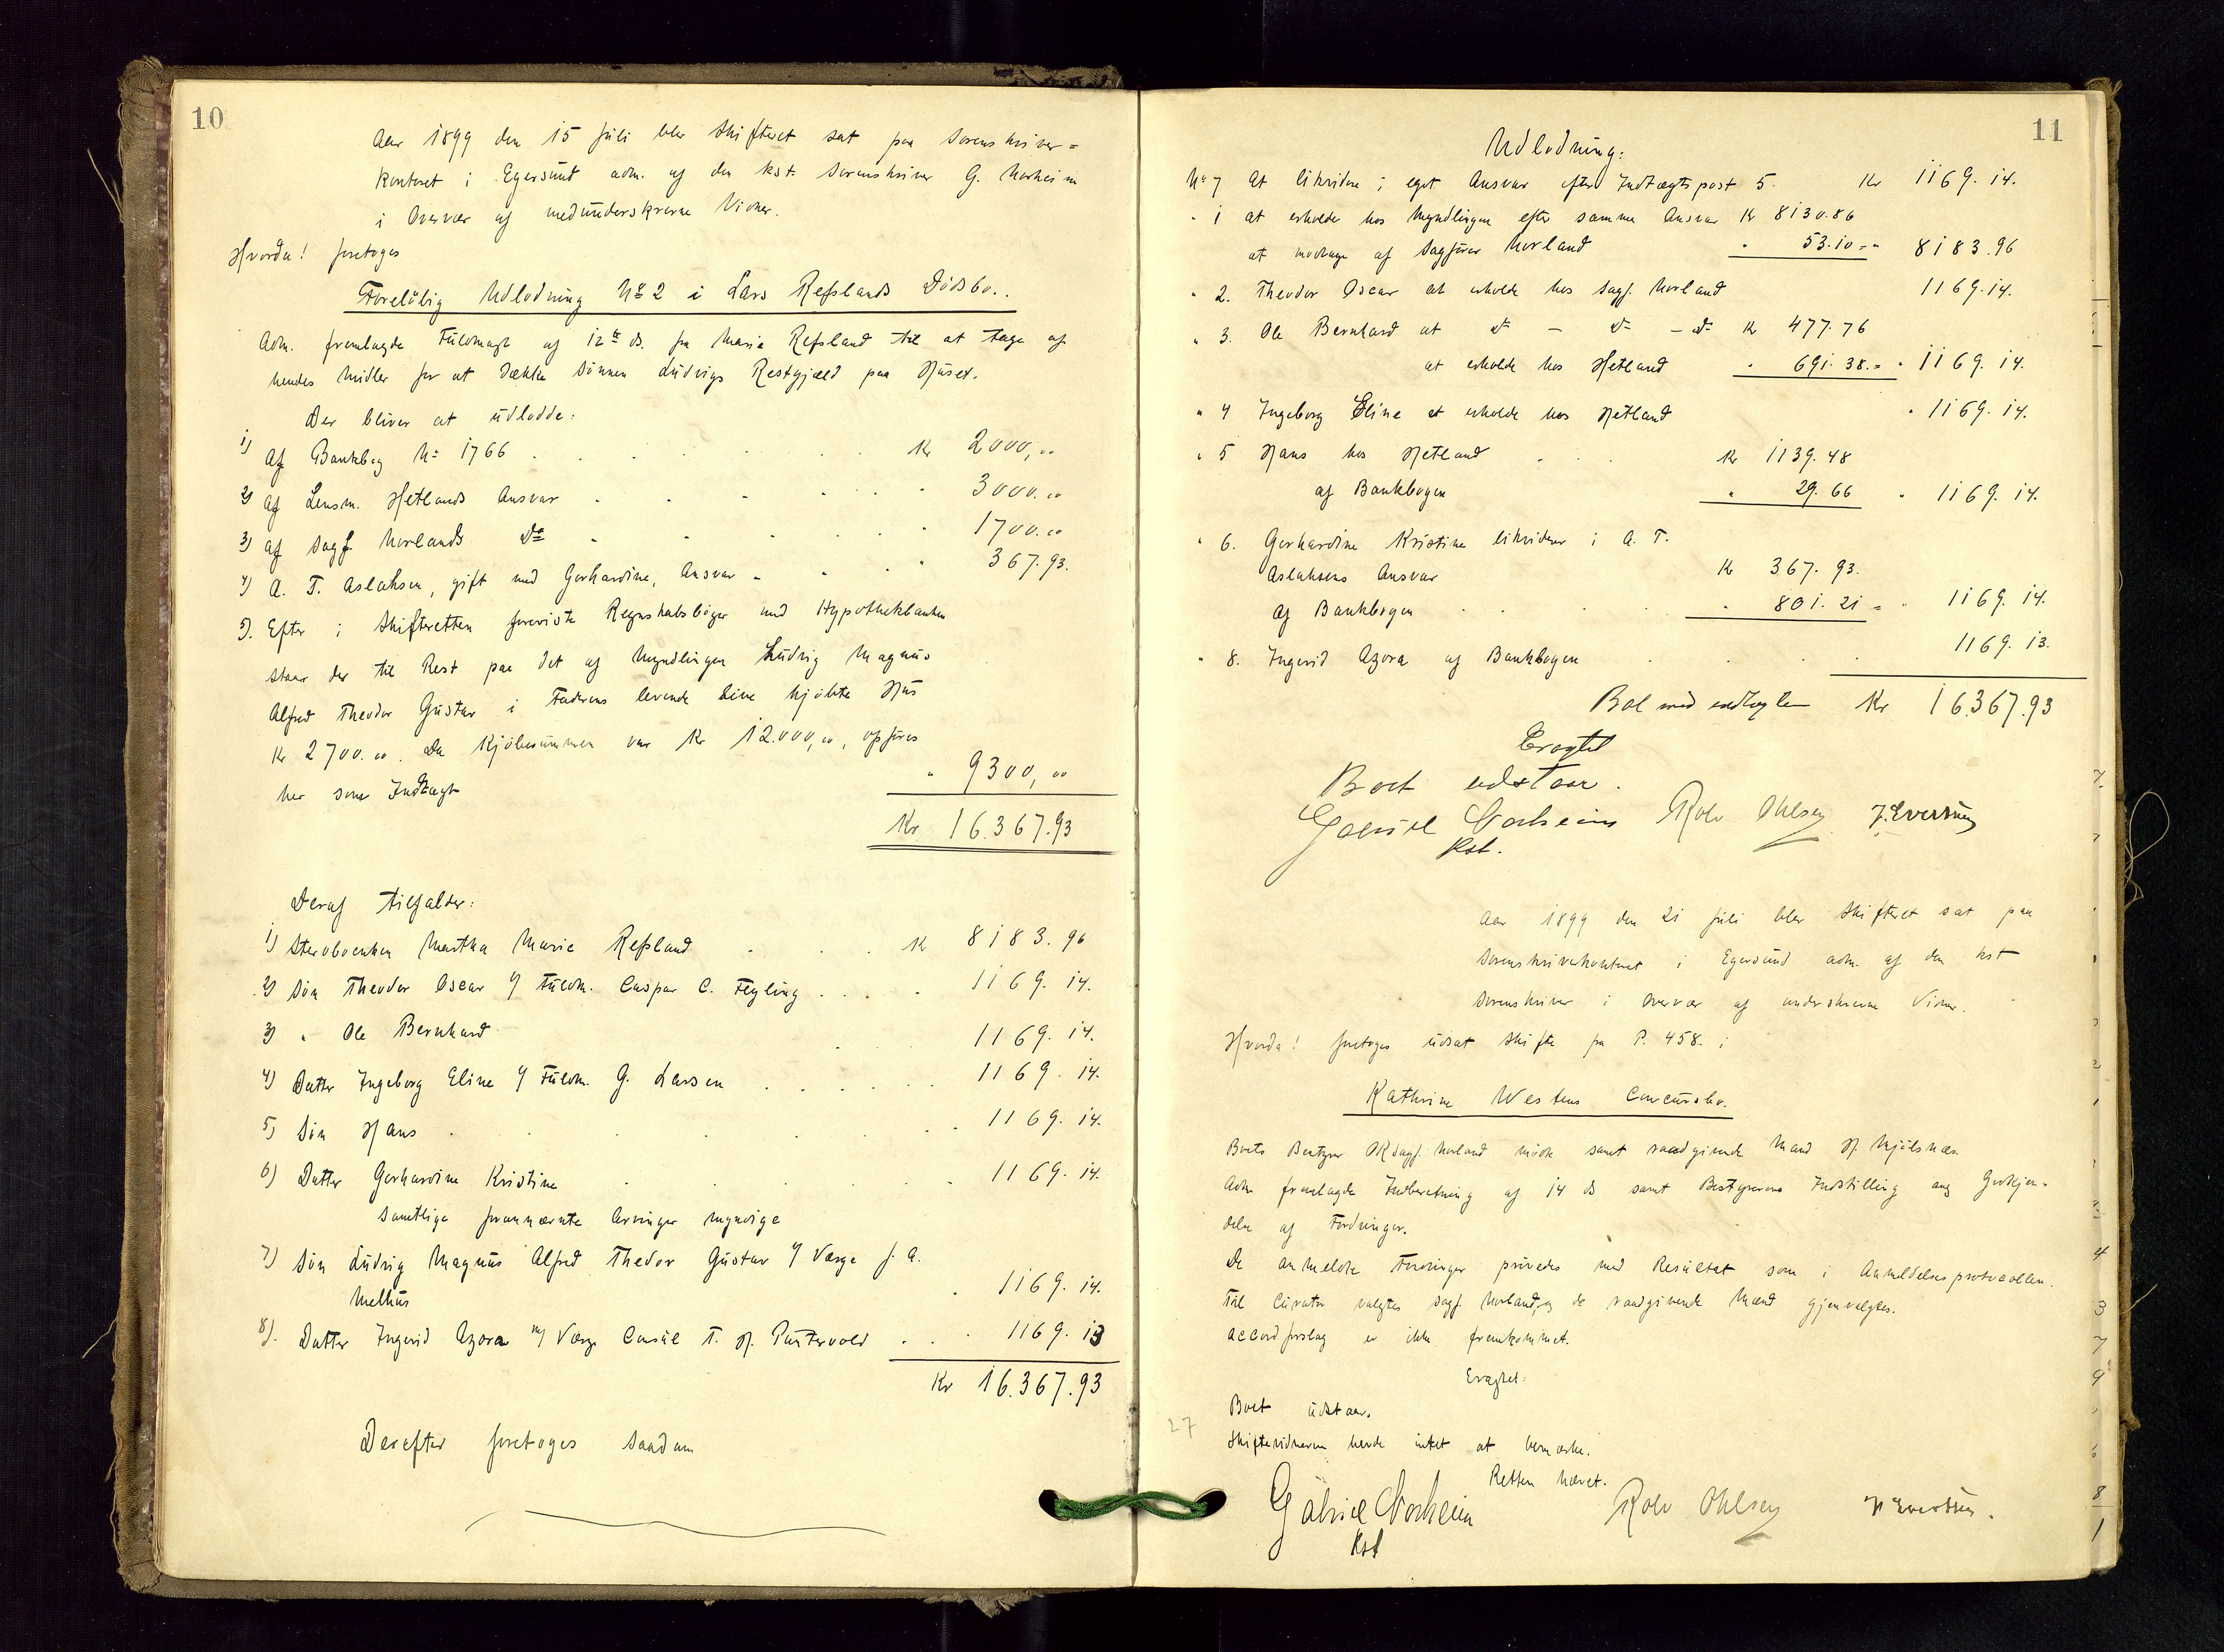 10
Aar 1899 den 15 Juli blev Skifteret sat paa Sorenskriver=
kontoret i Egersund adm. af den kst. Sorenskriver G. Norheim
i Overvær af medunderskrevne Vidner.
Hvorda! foretoges
Foreløbig Udlodning No 2 i Lars Refslands Dødsbo.
Adm. fremlagde Fuldmagt af 12te ds. fra Marie Refsland til at tage af
hendes Midler for at dække Sønnen Ludvigs Restgjæld paa Huset.
Der bliver at udlodde:
1) Af Bankbog No 1766 . . . Kr 2000,00
2) Af Lensm. Hetlands Ansvar - - - 3000.00
3) af Sagf. Norlands Do - - - 1700.00
4) A. T. Aslaksen, gift med Gerhardine, Ansvar - - 367.93.
5). Efter i Skifteretten foreviste Regnskabsbøger med Hypothekbanken
staar der til Rest paa det af Myndlingen Ludvig Magnus
Alfred Theodor Gustav i Faderens levende Live kjøbte Hus
Kr 2700.00. Da Kjøbesummen var Kr 12.000,00, opføres
her som Indtægt " 9300,00
Kr 16.367.93
Deraf tilfalder:
1) Stervboenken Martha Marie Refsland . . . Kr 8183.96
2) Søn Theodor Oscar v/ Fuldm. Caspar C. Feyling . . . 1169.14.
3) " Ole Bernhard 1169.14.
4) Datter Ingeborg Eline v/ Fuldm. G. Larsen . . . 1169.14.
5) Søn Hans . . . 1169.14.
6) Datter Gerhardine Kristine . . . 1169.14.
Samtlige forannævnte Arvinger myndige
7) Søn Ludvig Magnus Alfred Thedor Gustav v/ Værge J. A.
Melhus . 1169.14.
8). Datter Ingerid Azora m/ Værge Consul T. H. Puntervold . . . 1169.13
Kr 16.367.93
Derefter foretoges saadan
11
Udlodning:
No 7 At likvidere i eget Ansvar efter Indtægtspost 5. Kr 1169.14.
" 1 at erholde hos Myndlingen efter samme Ansvar Kr 8130.86
at modtage af Sagfører Norland " 53.10 = " 8183.96
" 2. Theodor Oscar at erholde hos Sagf. Norland 1169.14.
" 3. Ole Bernhard at do - do - do Kr 477.76
at erholde hos Hetland " 691.38. = " 1169.14.
" 4 Ingeborg Eline at erholde hos Hetland " 1169.14.
" 5 Hans hos Hetland . . . Kr 1139.48
af Bankbogen " 29.66 " 1169.14.
" 6. Gerhardine Kristine likviderer i A. T.
Aslaksens Ansvar Kr 367.93.
af Bankbogen . . . " 801.21 = " 1169.14.
" 8. Ingerid Azora af Bankbogen . . . 1169.13.
Bal med indtægten Kr 16.367.93
Eragtet
Boet udstaar.
Gabriel Norheim Rolv Ohlsen J. Evertsen
Kst.
Aar 1899 den 21 Juli blev Skifteret sat paa
Sorenskriverkontoret i Egersund adm. af den kst
Sorenskriver i Overvær af underskrevne Vidner.
Hvorda! foretoges udsat Skifte fra P. 458. i
Kathrine Westens Concursbo.
Boets Bestyrer OKSagf. Norland mødte samt raadgivende Mand H. Mjølsnæs.
Adm fremlagde Indberetning af 14 ds samt Bestyrerens Indstilling ang Godkjen-
delse af Fordringer.
De anmeldte Fordringer prøvedes med Resultat som i Anmeldelsesprotocollen.
Til Curator valgtes Sagf. Norland, og de raadgivende Mænd gjenvalgtes.
Accordforslag er ikke fremkommet.
Eragtet:
Boet udstaar.
27
Skiftevidnerne havde intet at bemærke.
Retten hævet.
Gabriel Norheim Rolv Ohlsen J. Evertsen.
Kst